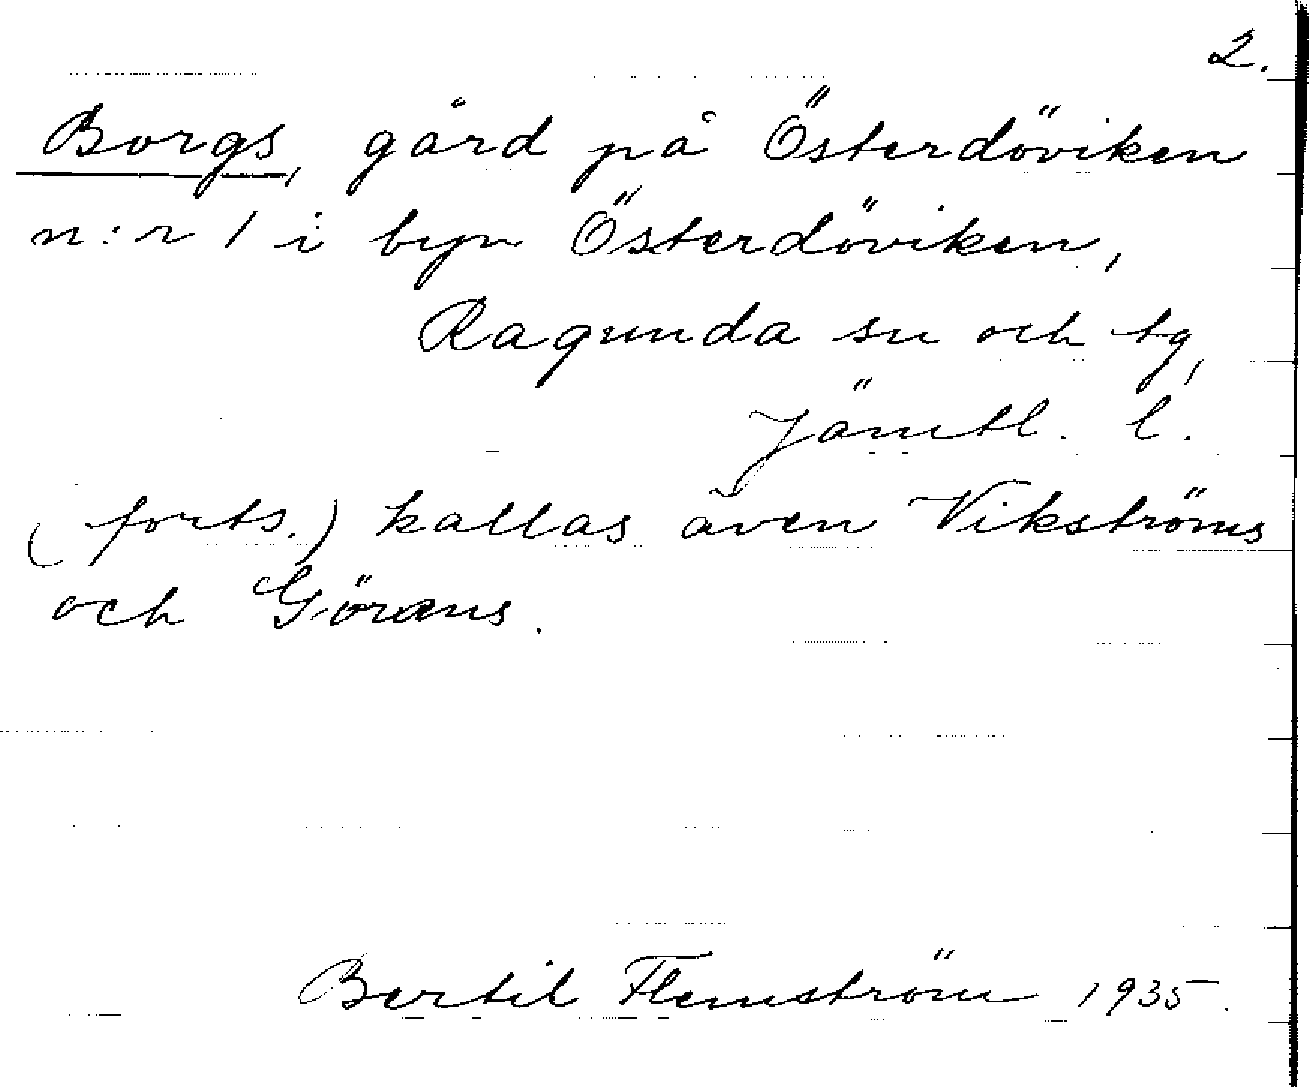 2.
Borgs, gård på Österdöviken
n:r 1 i byn Österdöviken,
Ragunda sn och tg,
Jämtl. l.
(forts.) kallas även Vikströms
och Görans.
Bertil Flemström 1935.